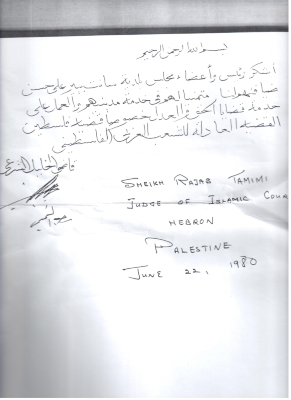 بسم الله الرحمن الرحيم
أشكر رئيس وأعضاء مجلس بلدية سانت على حسن
ضيافتهم لنا متمنيا لهم في خدمة مدينتهم والعمل على
خدمة قضايا الحق والعدل خصوصا قضية فلسطين
القضية العادلة للشعب العربي الفلسطيني
قاضي الخليل الشرعي
SHEIKH RAJAB TAMIMI
JUDGE OF ISLAMIC COUR
HEBRON
PALESTINE
JUNE 22, 1980